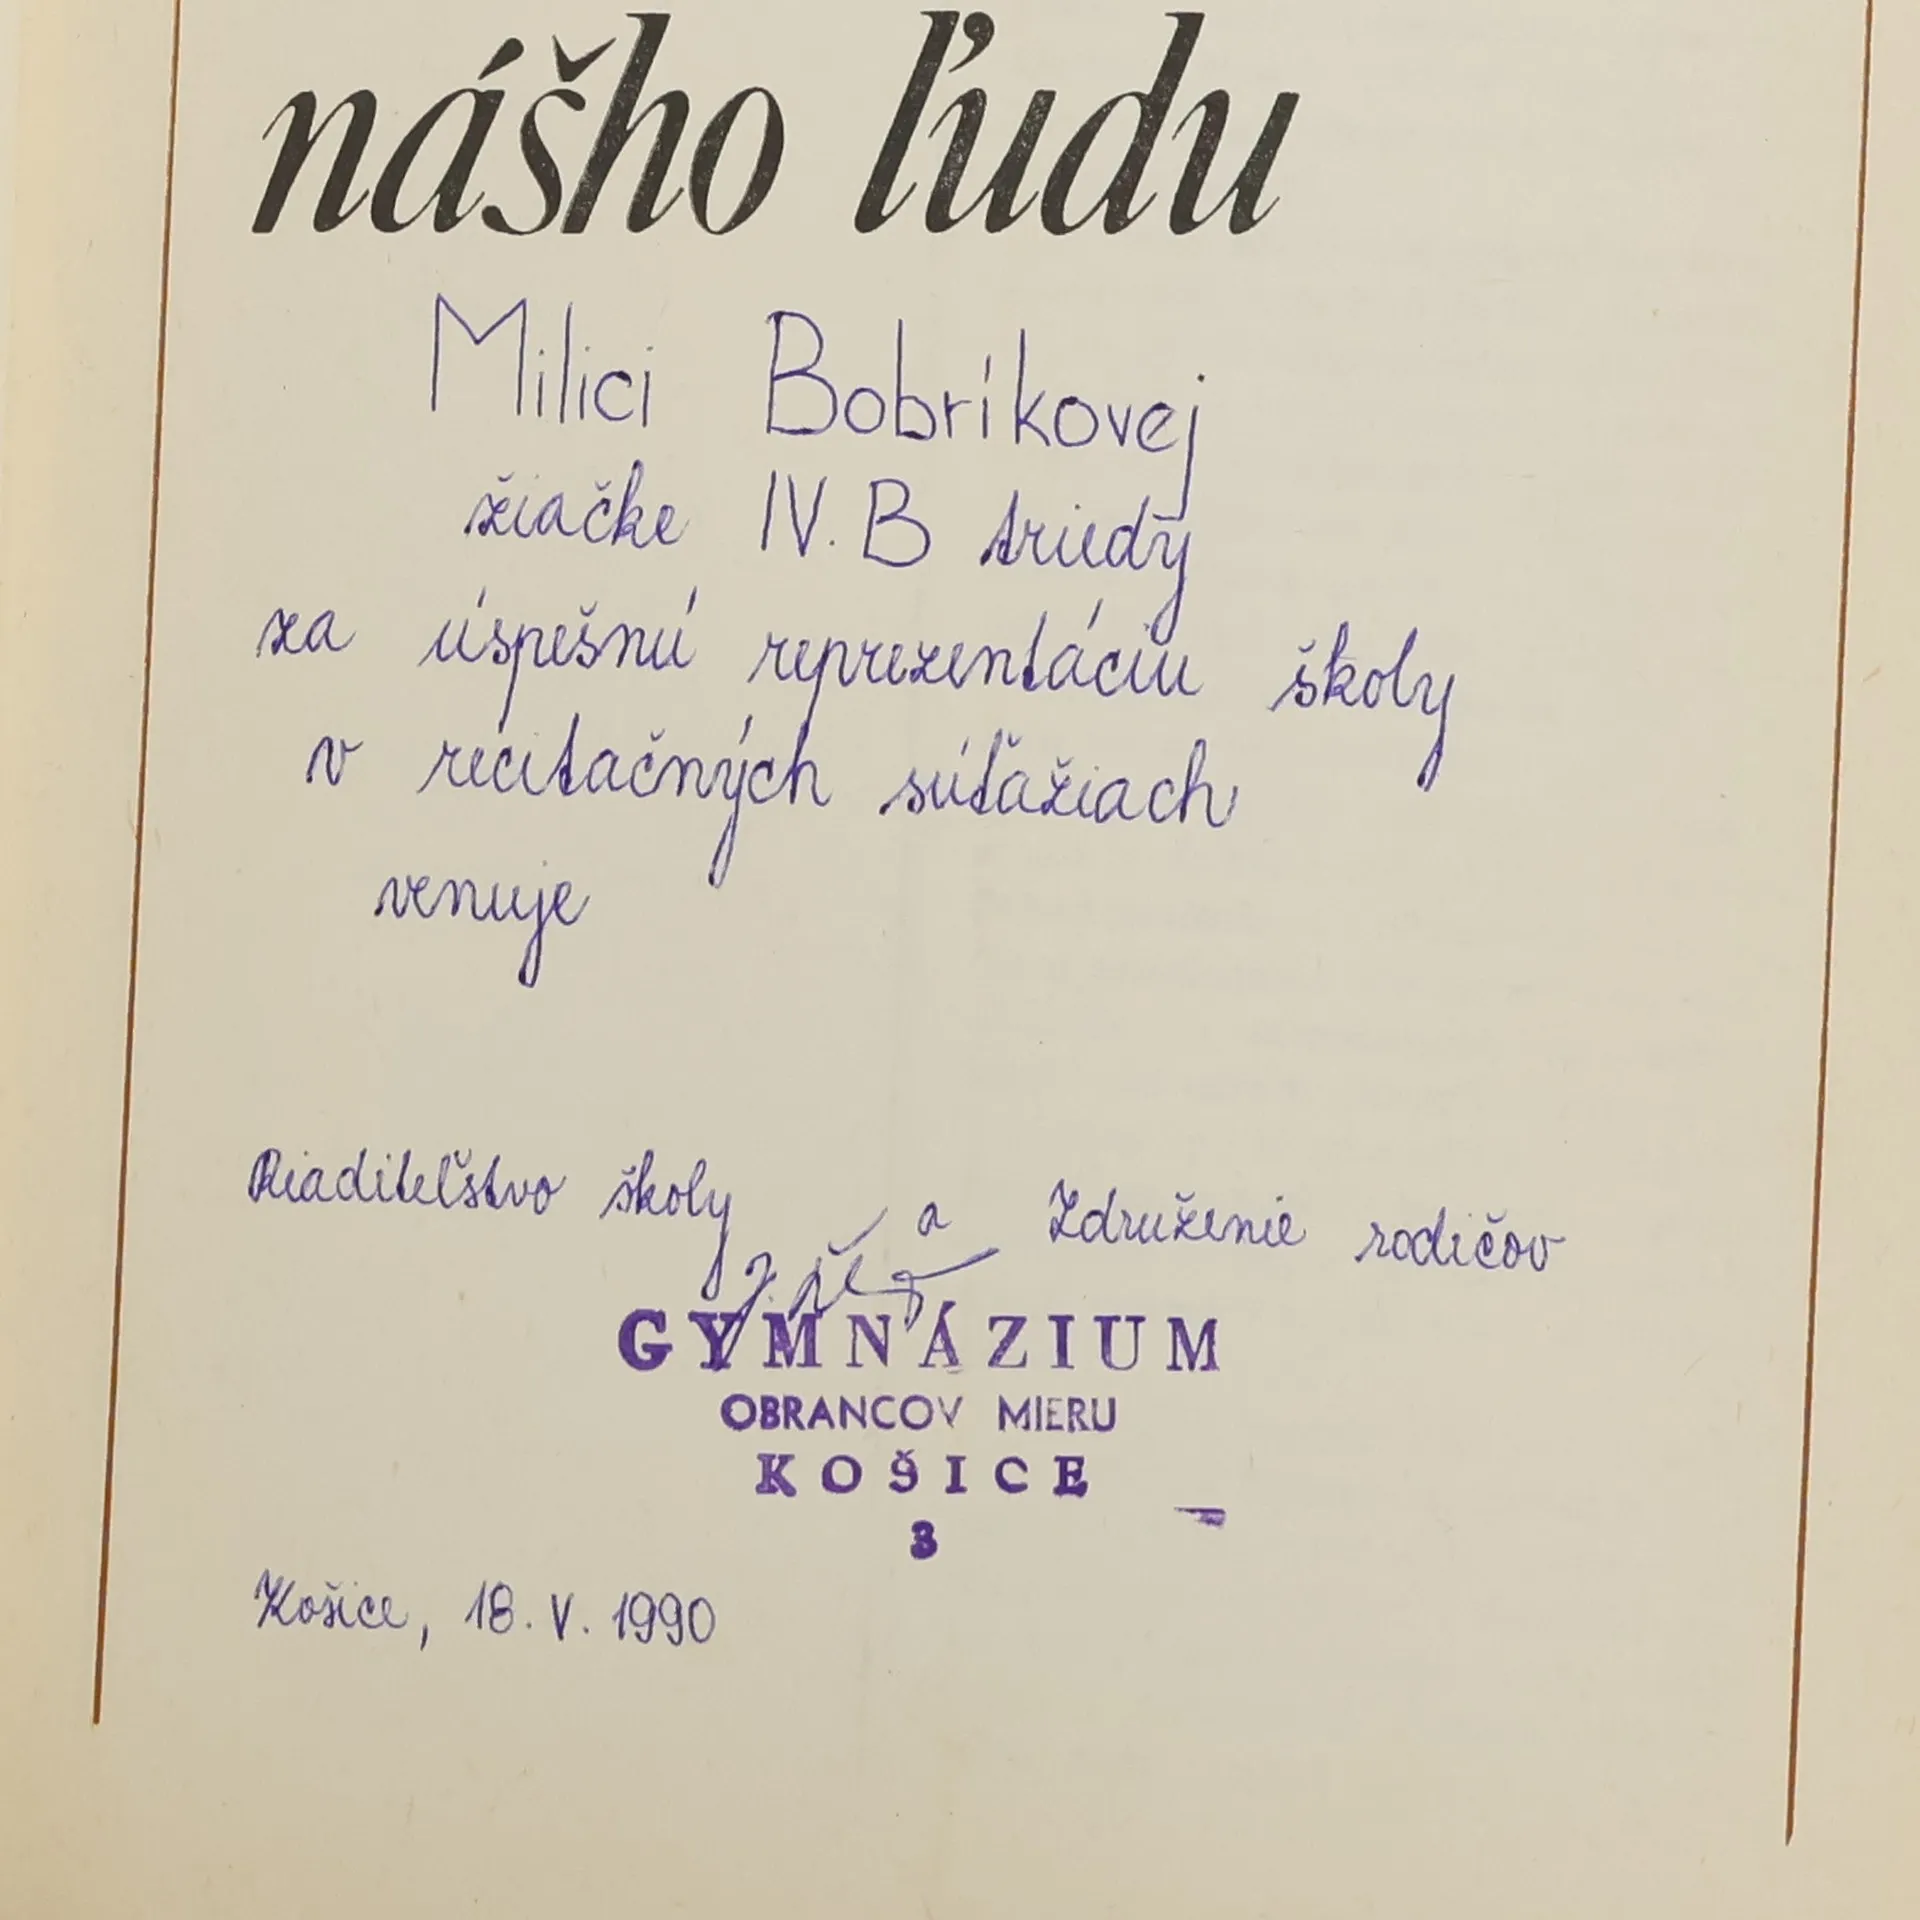 nášho ľudu
Milici Bobríkovej
žiačke IV. B triedy
za úspešnú reprezentáciu školy
v recitačných súťažiach
venuje
Riaditeľstvo školy a Združenie rodičov
GYMNÁZIUM
OBRANCOV MIERU
KOŠICE
3
Košice, 18. V. 1990